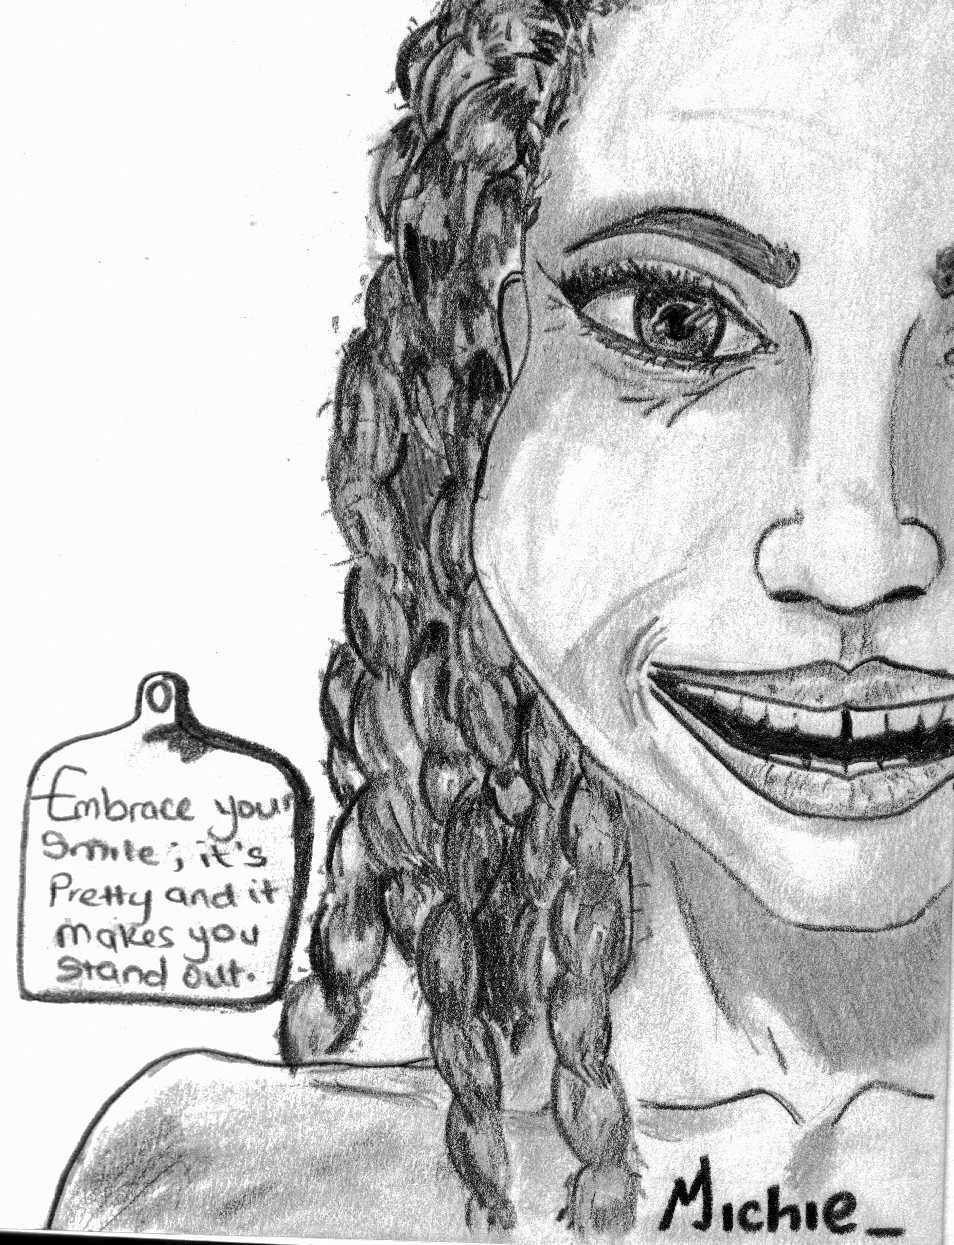 Embrace your
Smile; it's
Pretty and it
makes you
stand out.
Michie_